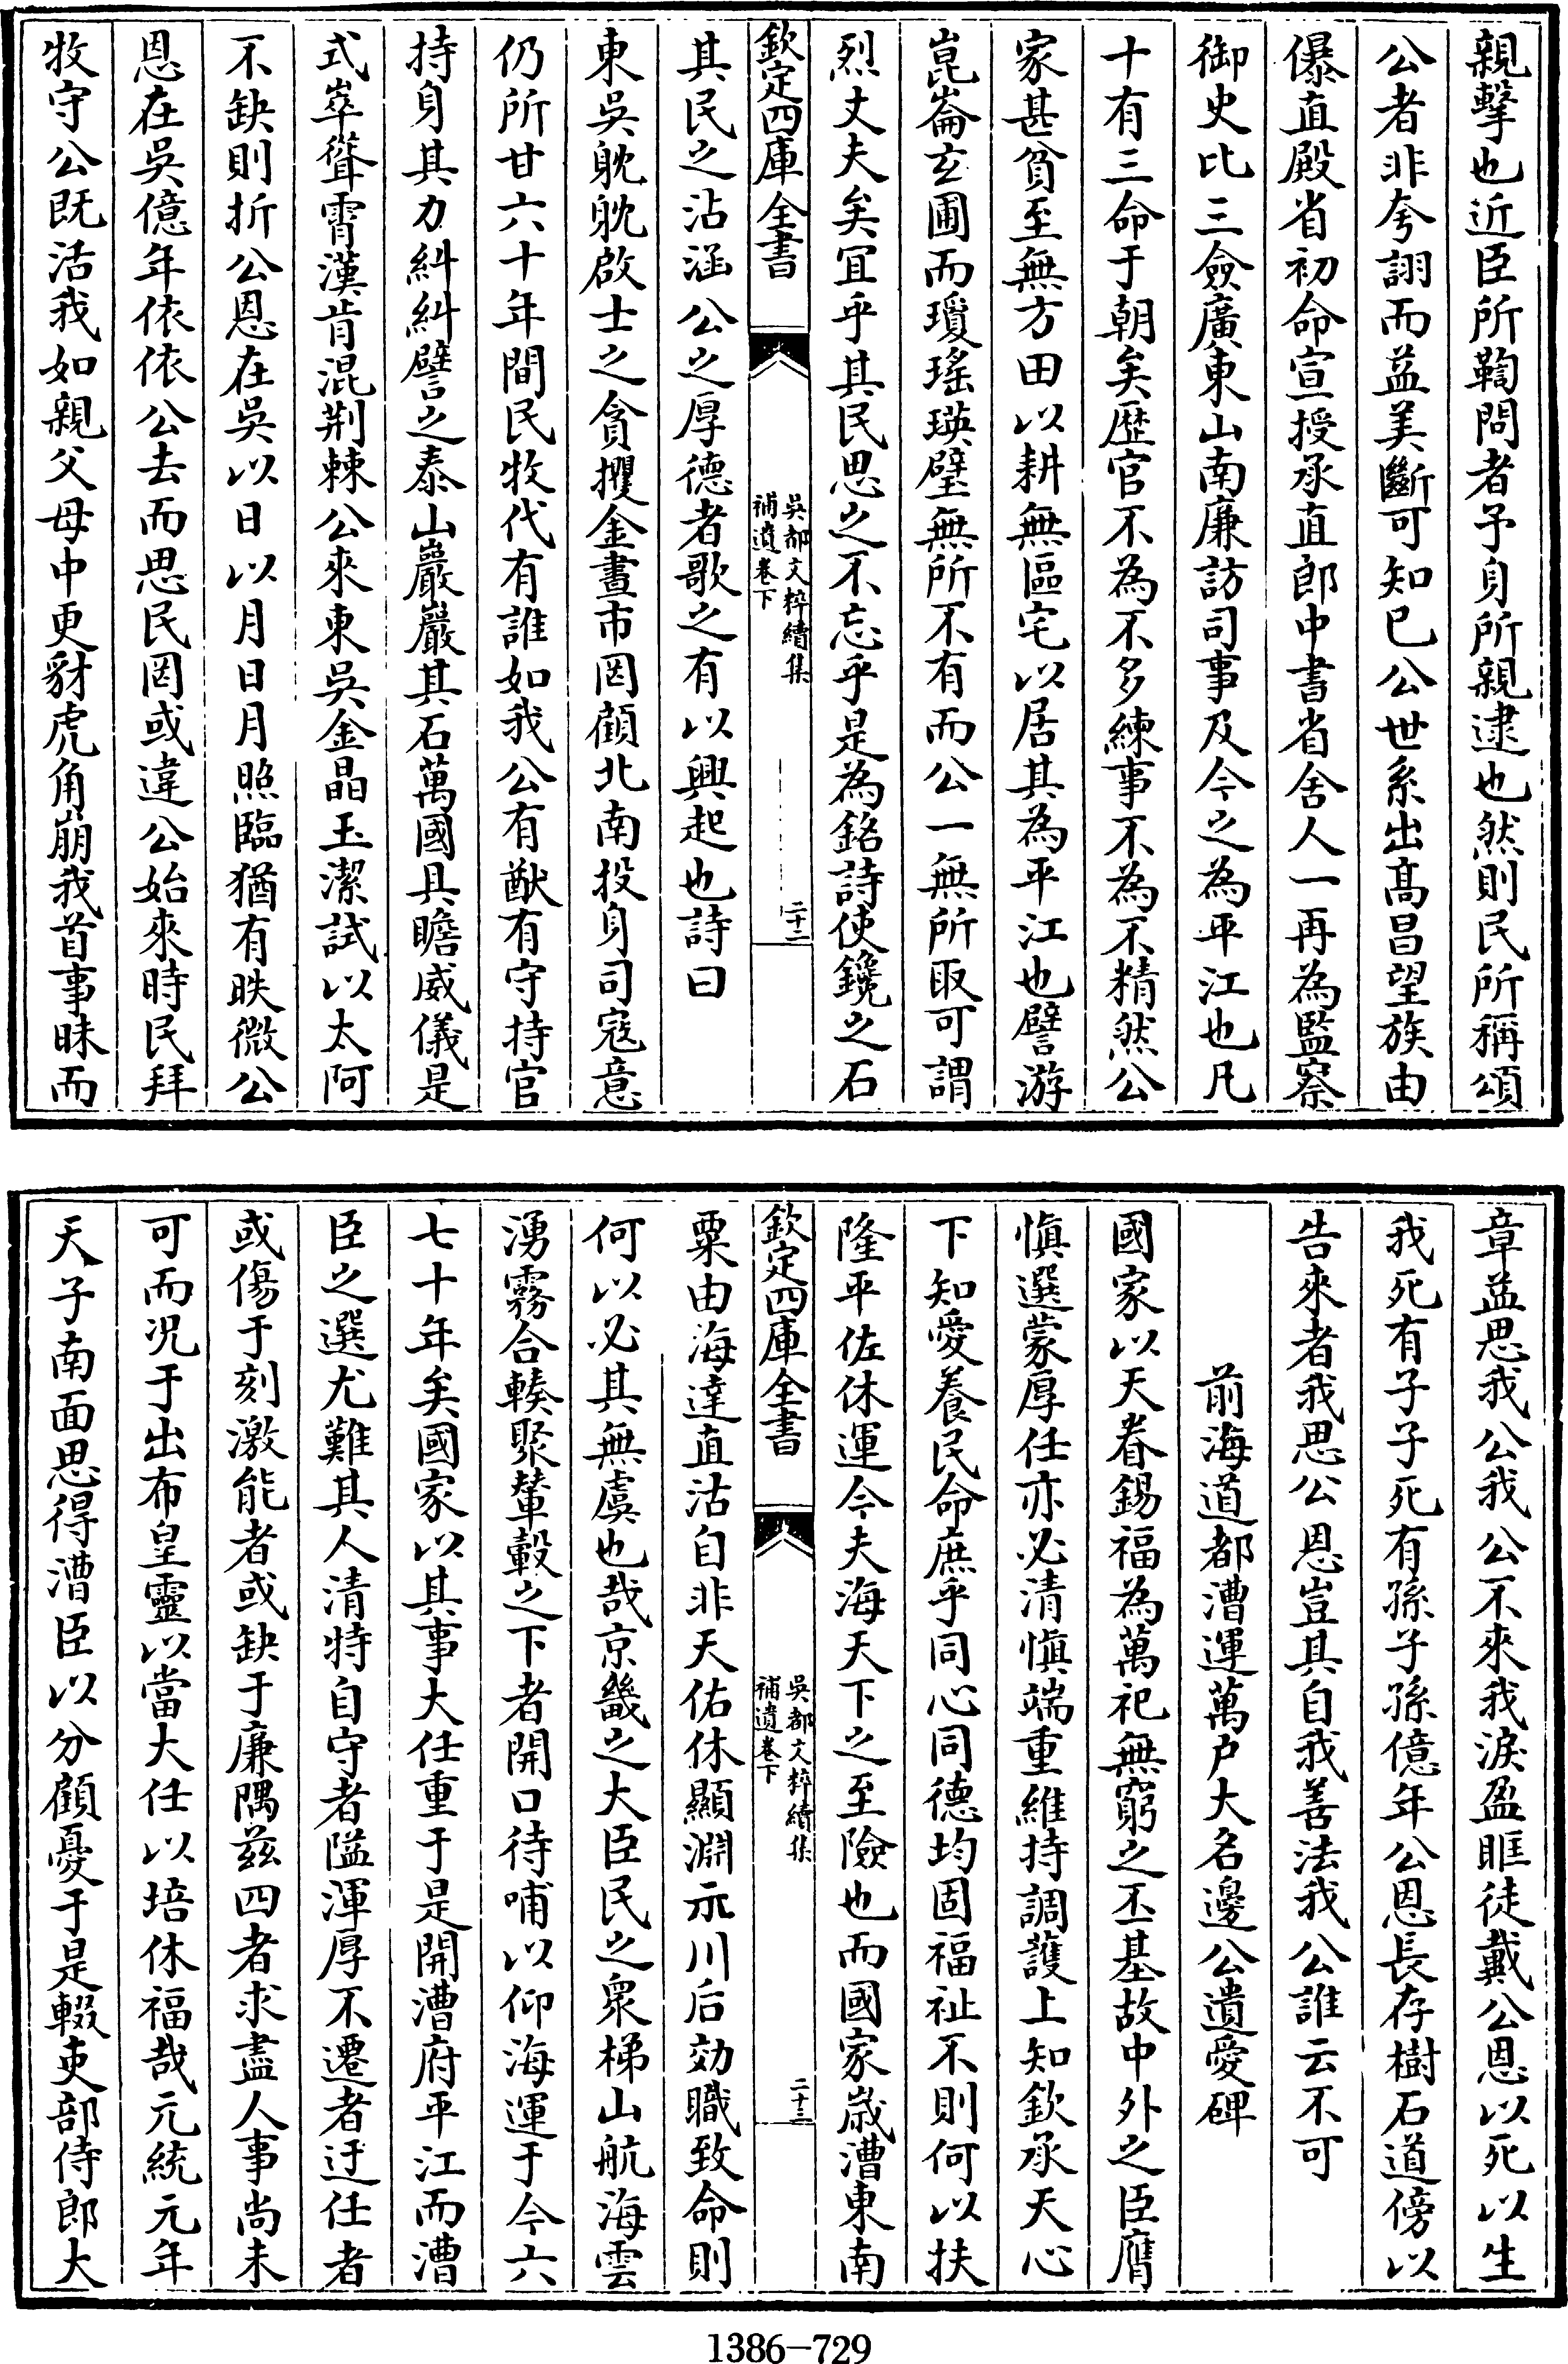 親擊也近臣所鞫問者予身所親逮也然則民所稱頌
公者非夸詡而益美斷可知已公世系出髙昌望族由
儤直殿省初命宣授承直郎中書省舍人一再為監察
御史比三僉廣東山南廉訪司事及今之為平江也凡
十有三命于朝矣歴官不為不多練事不為不精然公
家甚貧至無方田以耕無區宅以居其為平江也譬游
崑崙玄圃而瓊瑤瑛璧無所不有而公一無所取可謂
烈丈夫矣宜乎其民思之不忘乎是為銘詩使鑱之石
欽定四庫全書
吳都文粹續集
補遺卷下
二十二
其民之沾洽公之厚德者歌之有以興起也詩曰
東吳耽耽啟士之貪攫金晝市罔顧北南投身司寇意
仍所甘六十年間民牧代有誰如我公有猷有守持官
持身其力糾糾譬之泰山巖巖其石萬國具瞻威儀是
式崒聳霄漢肯混荆棘公來東吳金晶玉潔試以太阿
不缺則折公恩在吳以日以月日月照臨猶有昳微公
恩在吳億年依依公去而思民罔或違公始來時民拜
牧守公既活我如親父母中更豺虎角崩我首事昧而
章益思我公我公不來我淚盈眶徒戴公恩以死以生
我死有子子死有孫子孫億年公恩長存樹石道傍以
告來者我思公恩豈其自我善法我公誰云不可
前海道都漕運萬户大名邊公遺愛碑
國家以天眷錫福為萬祀無窮之丕基故中外之臣膺
愼選蒙厚任亦必清愼端重維持調護上知欽承天心
下知愛養民命庶乎同心同德均固福祉不則何以扶
隆平佐休運今夫海天下之至險也而國家歳漕東南
欽定四庫全書
吳都文粹續集
補遺卷下
二十三
粟由海達直沽自非天佑休顯淵示川后効職致命則
何以必其無虞也哉京畿之大臣民之衆梯山航海雲
湧霧合輳聚輦轂之下者開口待哺以仰海運于今六
七十年矣國家以其事大任重于是開漕府平江而漕
臣之選尤難其人清特自守者隘渾厚不遷者迂任者
或傷于刻激能者或缺于廉隅兹四者求盡人事尚未
可而况于出布皇靈以當大任以培休福哉元統元年
天子南面思得漕臣以分顧憂于是輟吏部侍郎大
1386-729